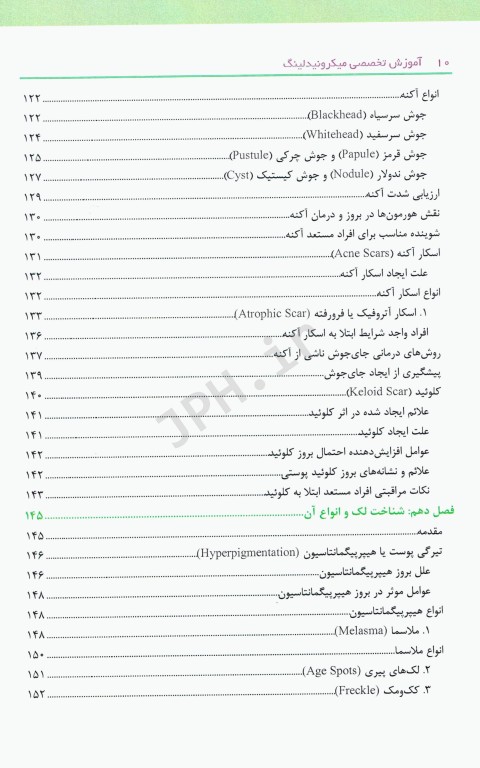 ۱۰ آموزش تخصصی میکرونیدلینگ
انواع آکنه ۱۲۲
جوش سرسیاه (Blackhead) ۱۲۲
جوش سرسفید (Whitehead) ۱۲۴
جوش قرمز (Papule) و جوش چرکی (Pustule) ۱۲۵
جوش ندولار (Nodule) و جوش کیستیک (Cyst) ۱۲۷
ارزیابی شدت آکنه ۱۲۹
نقش هورمون‌ها در بروز و درمان آکنه ۱۳۰
شوینده مناسب برای افراد مستعد آکنه ۱۳۰
اسکار آکنه (Acne Scars) ۱۳۱
علت ایجاد اسکار آکنه ۱۳۲
انواع اسکار آکنه ۱۳۲
۱. اسکار آتروفیک یا فرورفته (Atrophic Scar) ۱۳۳
افراد واجد شرایط ابتلا به اسکار آکنه ۱۳۶
روش‌های درمانی جای‌جوش ناشی از آکنه ۱۳۷
پیشگیری از ایجاد جای‌جوش ۱۳۹
کلوئید (Keloid Scar) ۱۴۰
علائم ایجاد شده در اثر کلوئید ۱۴۱
علت ایجاد کلوئید ۱۴۱
عوامل افزایش‌دهنده احتمال بروز کلوئید ۱۴۲
علائم و نشانه‌های بروز کلوئید پوستی ۱۴۲
نکات مراقبتی افراد مستعد ابتلا به کلوئید ۱۴۳
فصل دهم: شناخت لک و انواع آن ۱۴۵
مقدمه ۱۴۵
تیرگی پوست یا هیپرپیگمانتاسیون (Hyperpigmentation) ۱۴۶
علل بروز هیپرپیگمانتاسیون ۱۴۶
عوامل موثر در بروز هیپرپیگمانتاسیون ۱۴۸
انواع هیپرپیگمانتاسیون ۱۴۸
۱. ملاسما (Melasma) ۱۴۸
انواع ملاسما ۱۵۰
۲. لک‌های پیری (Age Spots) ۱۵۱
۳. کک‌ومک (Freckle) ۱۵۲
JPH.ir